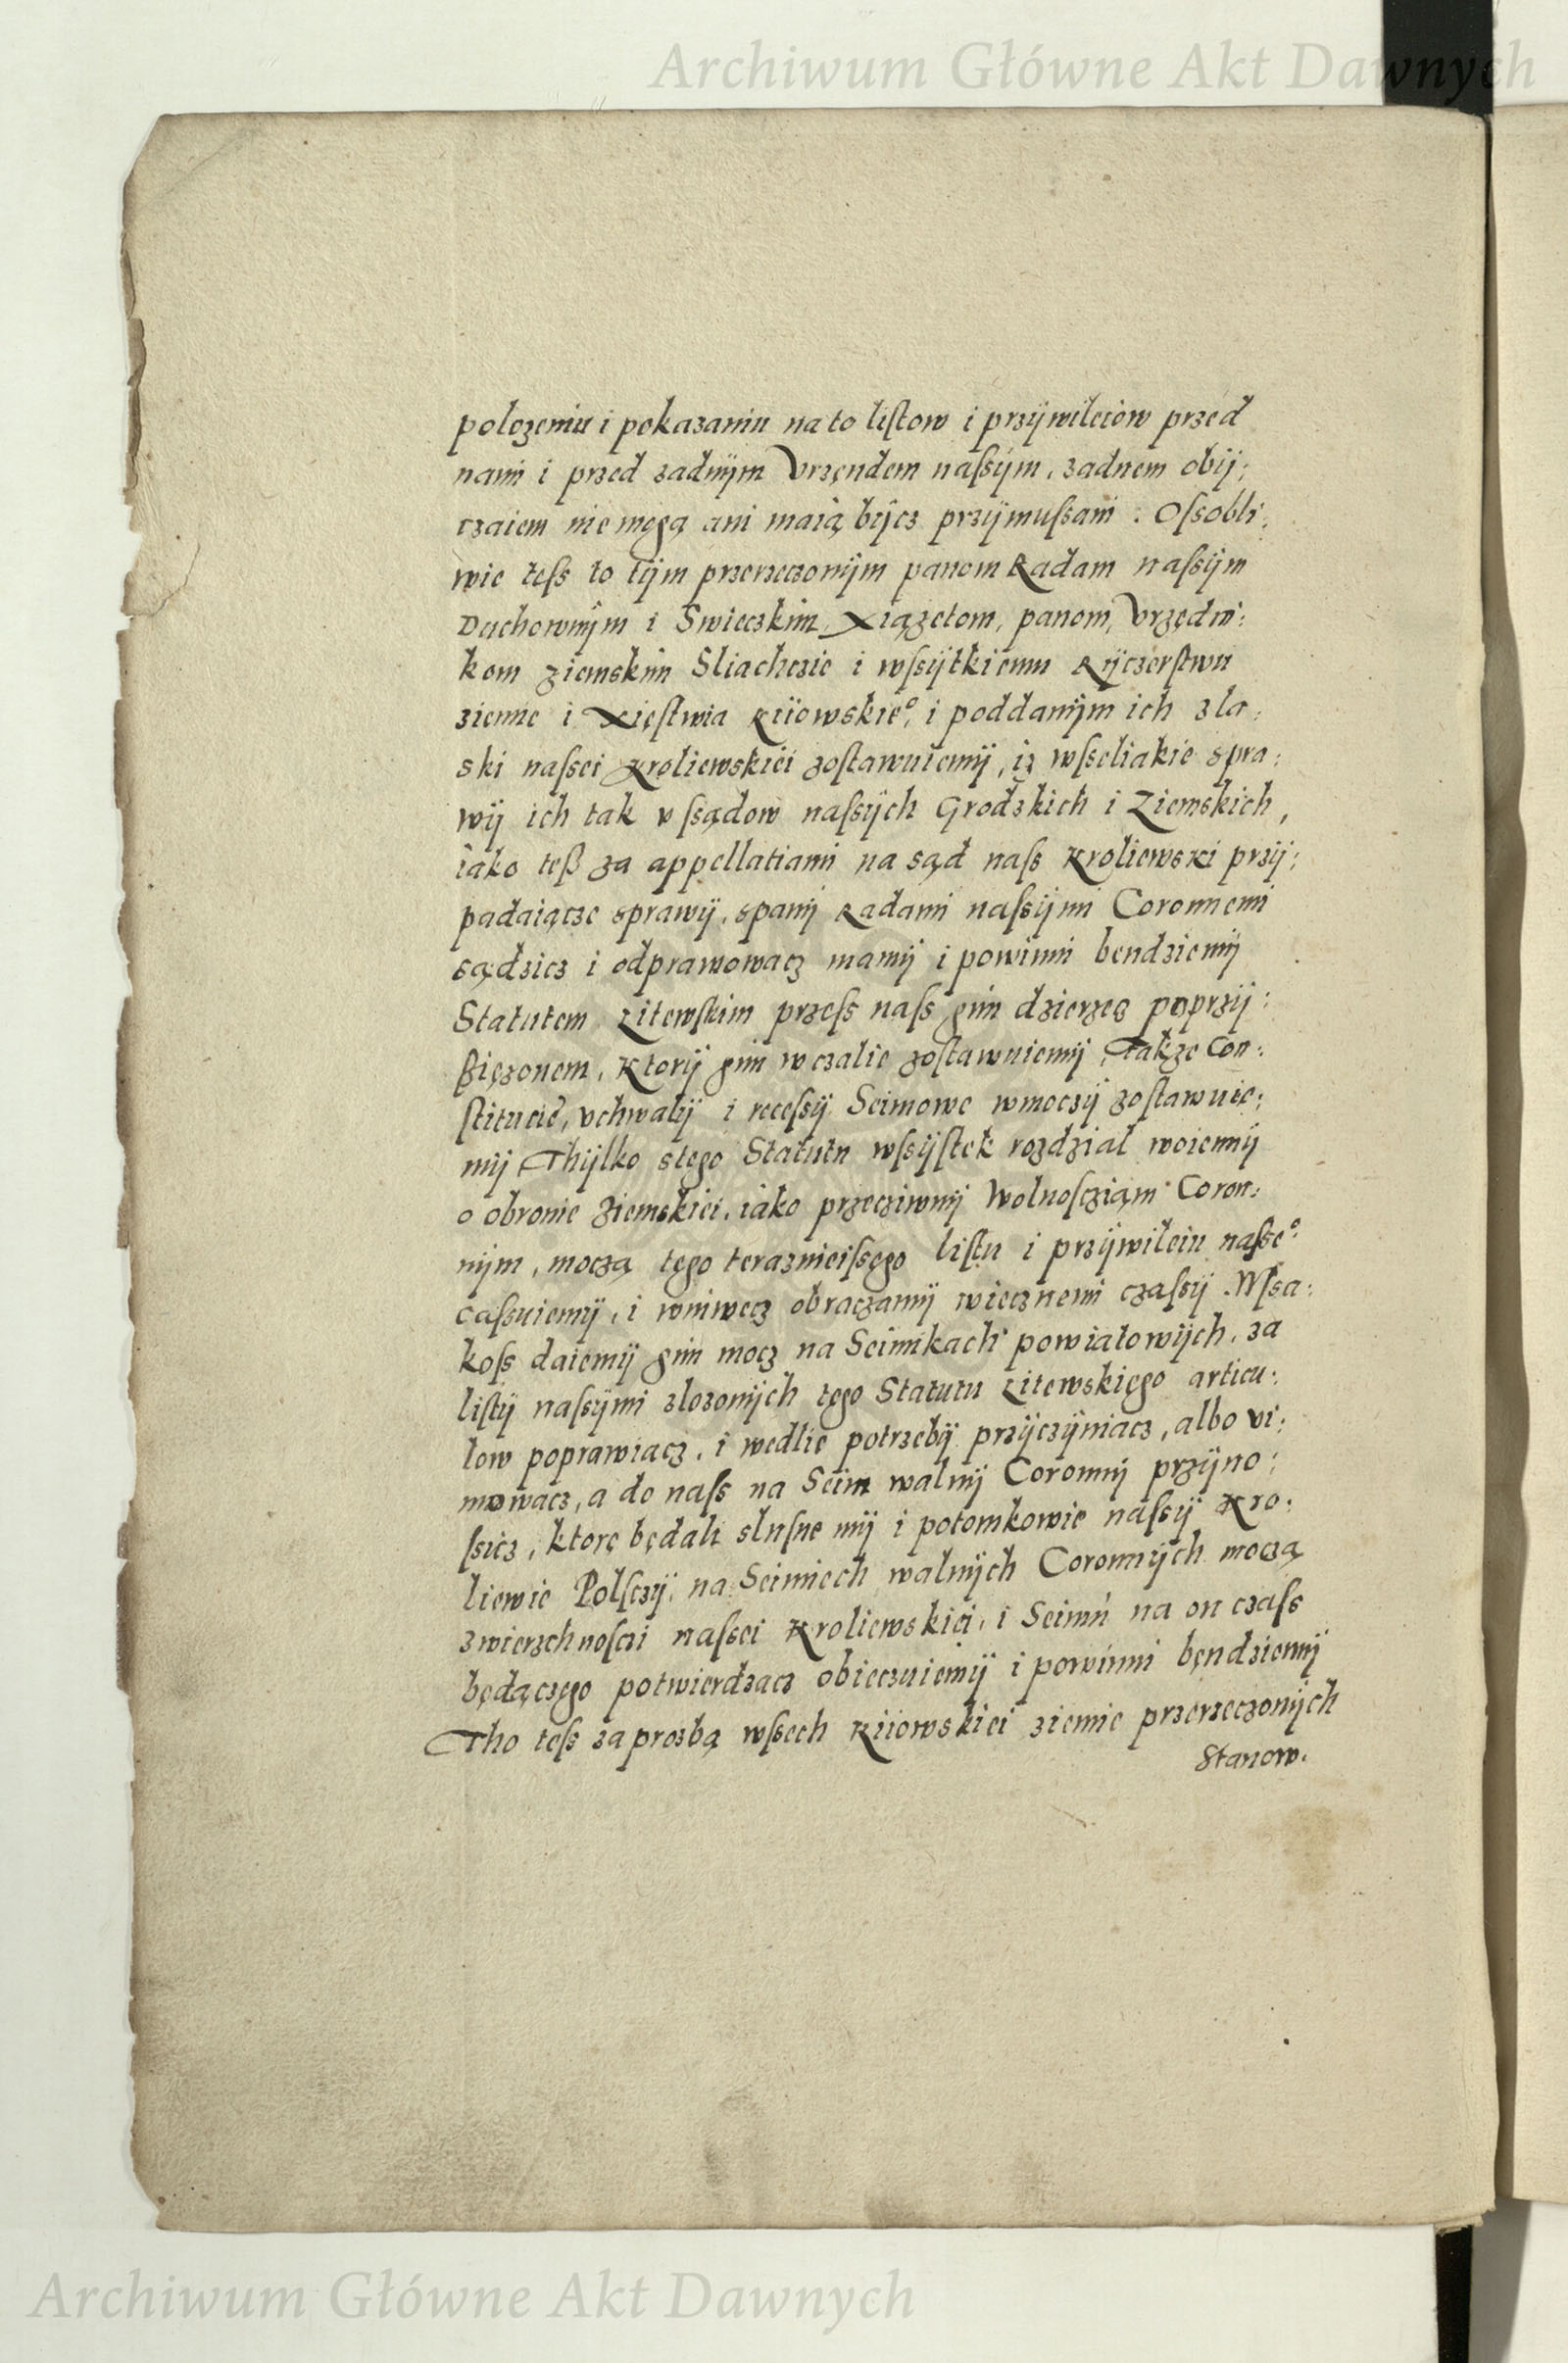 Archiwum Główne Akt Dawnych
polozeniu i pokazaniu na to listow i przÿwileiow przed
nami i przed zadnÿm Vrzęndem naſsÿm, zadnem obÿ:
czaiem nie mogą ani maią bÿcz przÿmuſsani. Oſsobli:
wie teſs to tÿm przerzeczonÿm panom Radam naſsÿm
Duchownÿm i Swieczkim, Xiązetom, panom, Vrzędni:
kom ziemskim Sliachczie i wſsÿtkiemu Rÿczerſtwu
ziemie i Xięſtwia Kiiowskie°, i poddanÿm ich z la:
ski naſsei Kroliewskiei zoſtawuiemÿ, iz wſseliakie spra:
wÿ ich tak v ſsądow naſsÿch Grodzkich i Ziemskich,
iako teß za appellatiami na sąd naſs Kroliewski przÿ:
padaiącze sprawÿ, spanÿ Radami naſsÿmi Coronnemi
sądzicz i odprawowacz mamÿ i powinni bendziemÿ
Statutem Litewſkim przeſs naſs gim dzierzec poprzÿ:
ßięzonem, Ktorÿ gim wczalie zoſtawuiemÿ, Takze Con:
ſtitucie, vchwalÿ i receſsÿ Seimowe wmoczÿ zoſtawuie:
mÿ Thÿlko stego Statutu wſsÿſtek rozdzial woiennÿ
o obronie Ziemskiei, iako przeciwnÿ Wolnoſcziąm Coron:
nÿm, moczą tego teraznieiſsego liſtu i przÿwileiu naſse°
caſsuiemÿ, i wniwecz obraczamÿ wiecznemi czaſsÿ. Wſsa:
koſs daiemÿ gim mocz na Seimikach powiatowÿch, za
liſtÿ naſsÿmi zlozonÿch tego Statutu Litewskięgo articu:
low poprawiacz, i wedlie potrzebÿ przÿczÿniacz, albo vi:
mowacz, a do naſs na Seim walnÿ Coronnÿ przÿno:
ſsicz, ktorę będali sluſne mÿ i potomkowie naſsÿ Kro:
liewie Polſczÿ, na Seimiech walnÿch Coronnÿch moczą
zwierzchnoſczi naſsei Kroliewskiei, i Seimu na on czaſs
będączego potwierdzacz obieczuiemÿ i powinni będziemÿ
Tho teſs za prozbą wſsech Kiiowskiei ziemie przerzeczonÿch
Stanow.
Archiwum Główne Akt Dawnych